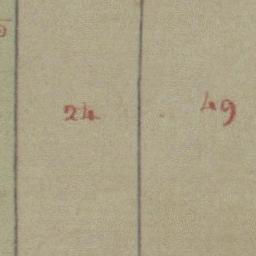 24
49